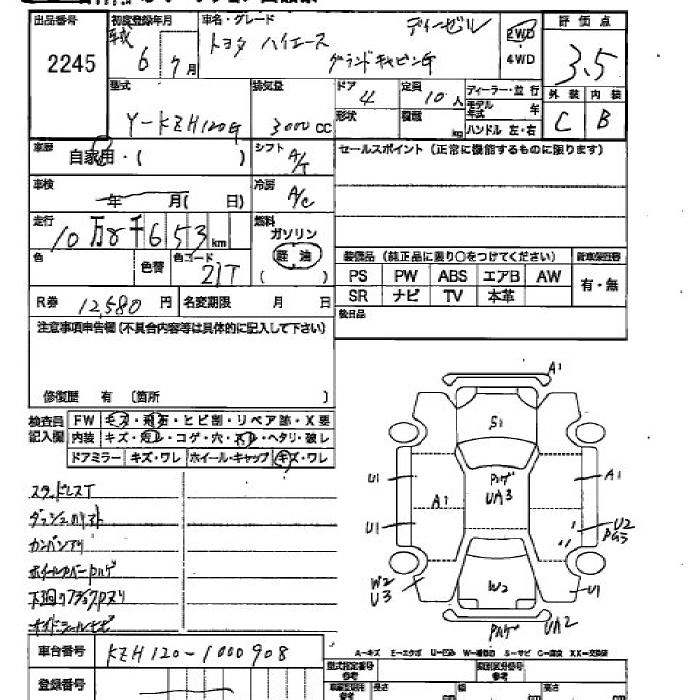 出品番号 初度登録年月 車名・グレード ディーゼル 2WD 評価点
2245 6 7月 トヨタ ハイエース 4WD 3.5
グランドキャビンG
型式 排気量 ドア 4 定員 10人 ディーラー・並行 外装 内装
モデル年式 年
Y-KZH120G 3000cc 形状 積載 kg ハンドル 左・右 C B
車歴 自家用・( ) シフト A/T セールスポイント(正常に機能するものに限ります)
車検 年 月( 日) 冷房 A/C
走行 10万8千653km 燃料
ガソリン
軽油
( )
色 色替 色コード 21T
装備品(純正品に限り○をつけてください) 新車保証書
PS PW ABS エアB AW 有・無
SR ナビ TV 本革
R券 12,580円 名変期限 月 日 後日品
注意事項申告欄(不具合内容等は具体的に記入して下さい)
修復歴 有 〔箇所 〕
検査員記入欄 FW キズ・飛石・ヒビ割・リペア跡・X要
内装 キズ・汚レ・コゲ・穴・スレ・ヘタリ・破レ
ドアミラー キズ・ワレ ホイール・キャップ キズ・ワレ
A1
S1
U1 ハゲ A1
UA3
A1
U1 U2
PG3
W2 U3 W2 U1
ハゲ UA2
スタッドレスT
カンバンアリ
車台番号 KZH120-1000908
A-キズ E-エクボ U-凹み W-補修跡 S-サビ C-腐食 XX-交換済
登録番号 型式指定番号 参考 類別区分番号 参考
長さ 幅 高さ